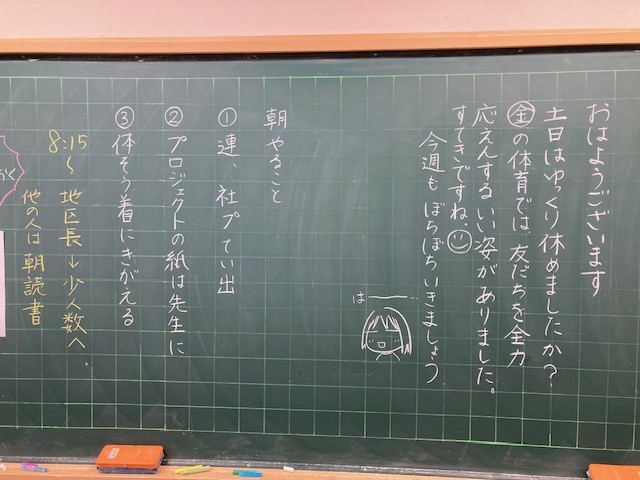 おはようございます
土日はゆっくり休めましたか？
金の体育では、友だちを全力
応えんするいい姿がありました。
すてきですね。
今週もぼちぼちいきましょう
はー
朝やること
①連、社プてい出
②プロジェクトの紙は先生に
③体そう着にきがえる
8:15～ 地区長→少人数へ。
他の人は朝読書